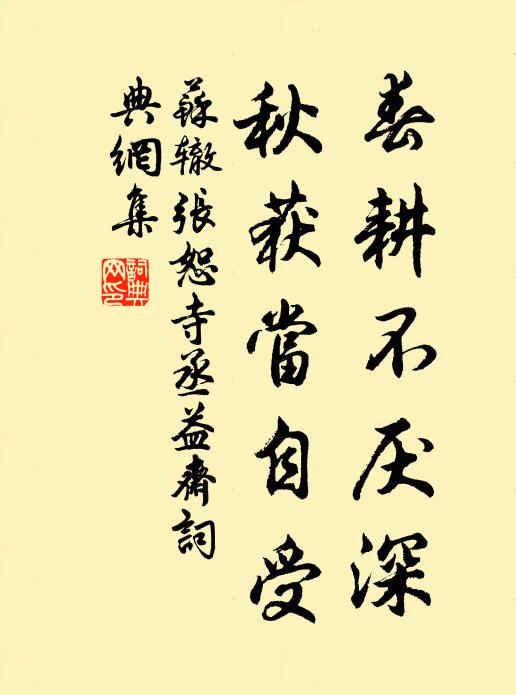 春耕不厌深
秋获當自受
蘇辙張恕寺丞益齋詞
典網集
詞典
网印